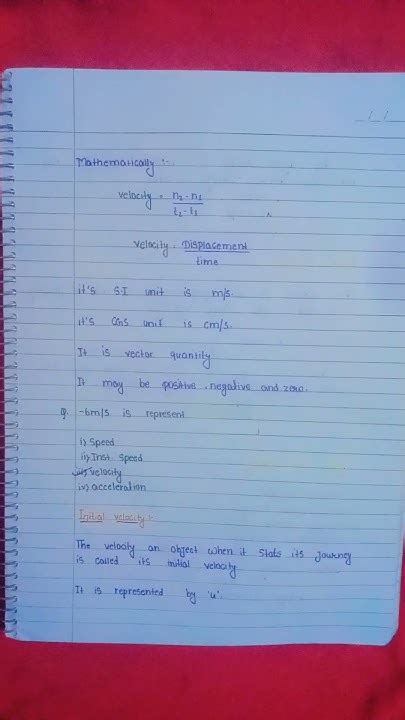 _/_/
Mathematically :-
velocity = n2 - n1
t2 - t1
velocity = Displacement
time
it's S.I unit is m/s.
it's CGS unit is cm/s.
It is vector quantity
It may be positive, negative and zero.
Q. -6m/s is represent
i) Speed
ii) Inst. Speed
iii) velocity
iv) acceleration
Initial velocity :-
The velocity an object when it stats its journey
is called its initial velocity
It is represented by 'u'.